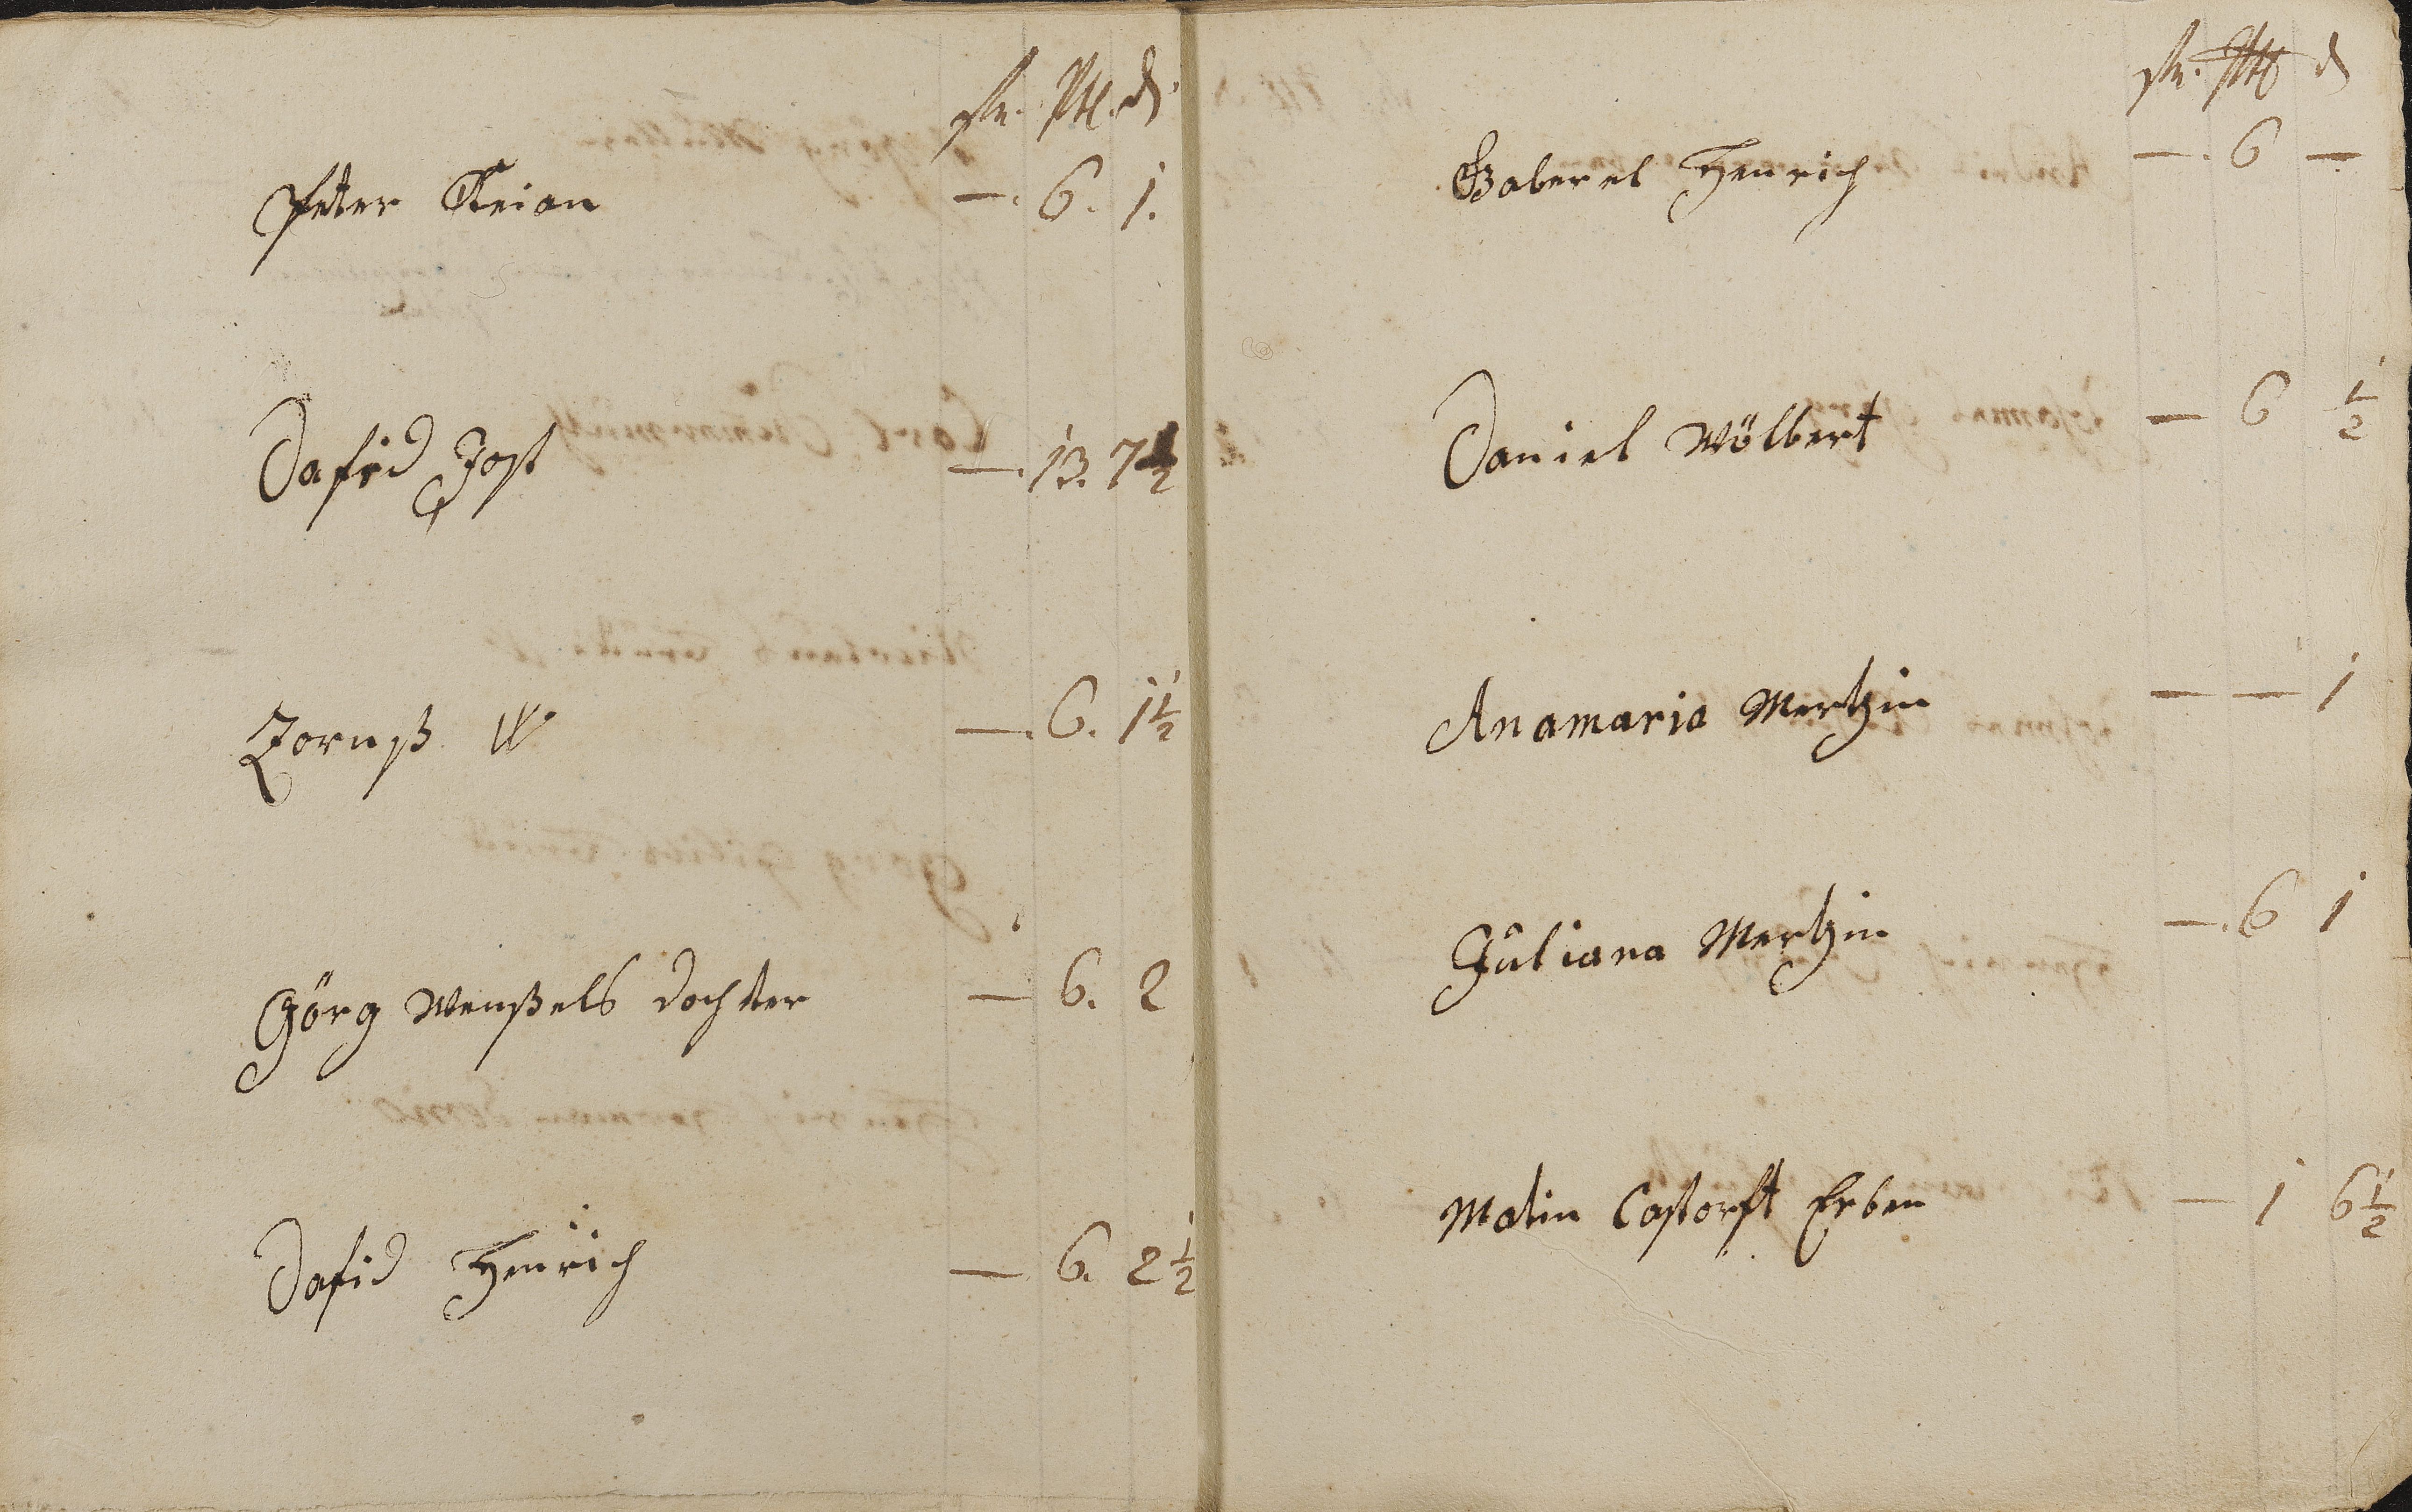 fl. Btz. d.
Peter Steian — 6. 1.
Dafid Jost — 13. 7 1/2
Zornß W. — 6. 1 1/2
Görg Wenßels dochter — 6. 2
Dafid Henrich — 6. 2 1/2
fl. d
Gaberel Henrich — 6 —
Daniel Wölbert — 6 1/2
Anamaria Mertzin — — 1
Juliana Mertzin — 6 1
Matin Castorft Erben — 1 6 1/2